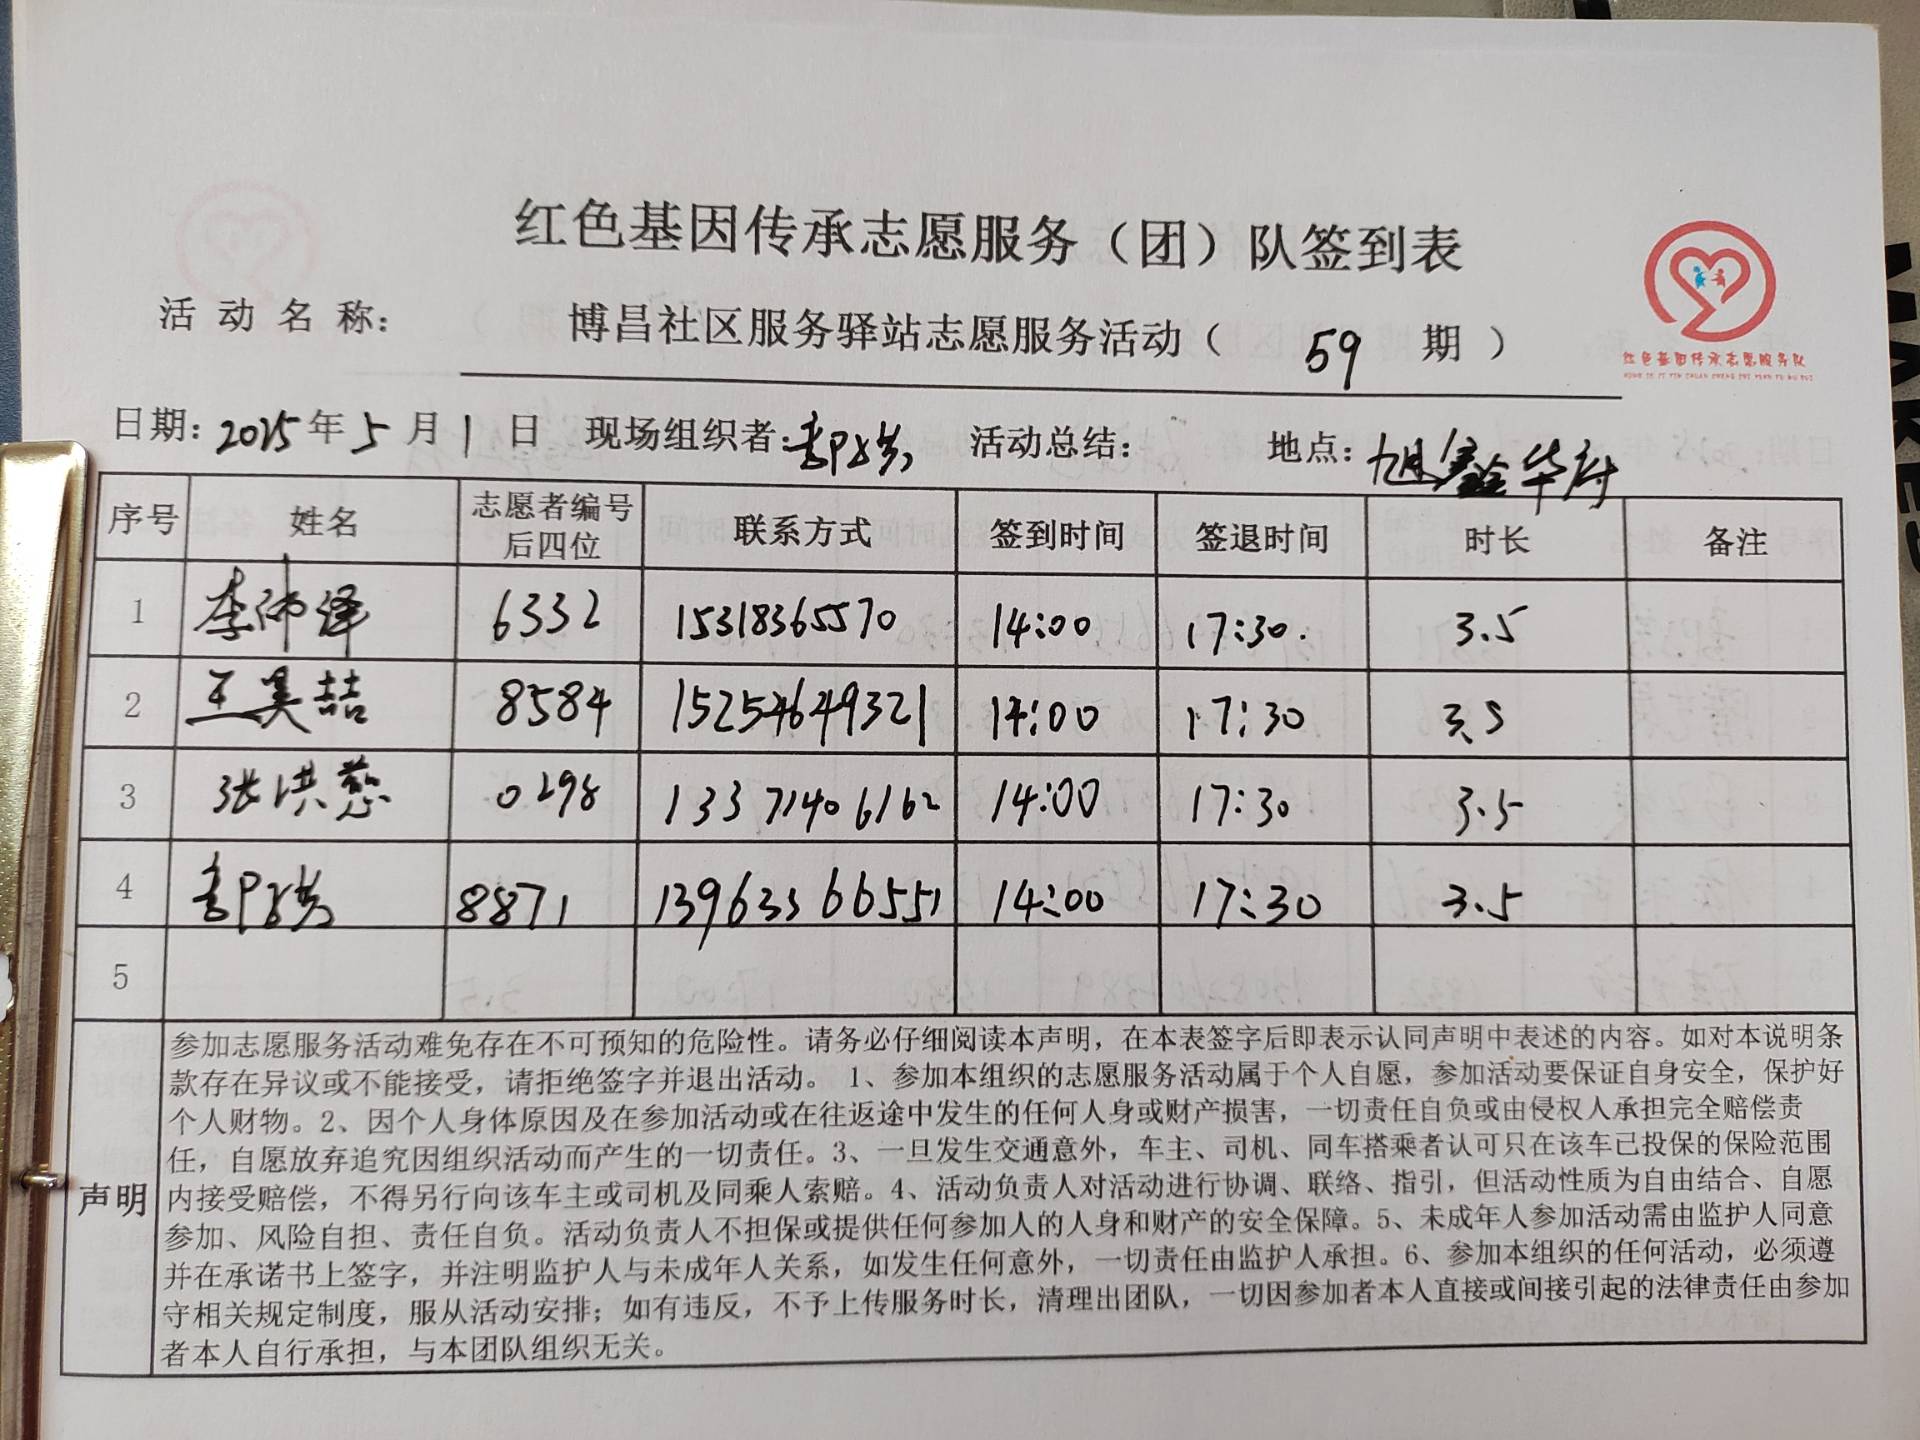 红色基因传承志愿服务（团）队签到表
活动名称： 博昌社区服务驿站志愿服务活动（ 59 期 ）
红色基因传承志愿服务队
日期：2025年5月1日 现场组织者： 活动总结： 地点：旭鑫华府
序号 姓名 志愿者编号后四位 联系方式 签到时间 签退时间 时长 备注
1 李沛泽 6332 15318365570 14:00 17:30. 3.5
2 王昊喆 8584 15254649321 14:00 17:30 3.5
3 张洪慈 0298 13371406162 14:00 17:30 3.5
4 8871 13963366551 14:00 17:30 3.5
5
声明
参加志愿服务活动难免存在不可预知的危险性。请务必仔细阅读本声明，在本表签字后即表示认同声明中表述的内容。如对本说明条
款存在异议或不能接受，请拒绝签字并退出活动。 1、参加本组织的志愿服务活动属于个人自愿，参加活动要保证自身安全，保护好
个人财物。2、因个人身体原因及在参加活动或在往返途中发生的任何人身或财产损害，一切责任自负或由侵权人承担完全赔偿责
任，自愿放弃追究因组织活动而产生的一切责任。3、一旦发生交通意外，车主、司机、同车搭乘者认可只在该车已投保的保险范围
内接受赔偿，不得另行向该车主或司机及同乘人索赔。4、活动负责人对活动进行协调、联络、指引，但活动性质为自由结合、自愿
参加、风险自担、责任自负。活动负责人不担保或提供任何参加人的人身和财产的安全保障。5、未成年人参加活动需由监护人同意
并在承诺书上签字，并注明监护人与未成年人关系，如发生任何意外，一切责任由监护人承担。6、参加本组织的任何活动，必须遵
守相关规定制度，服从活动安排；如有违反，不予上传服务时长，清理出团队，一切因参加者本人直接或间接引起的法律责任由参加
者本人自行承担，与本团队组织无关。